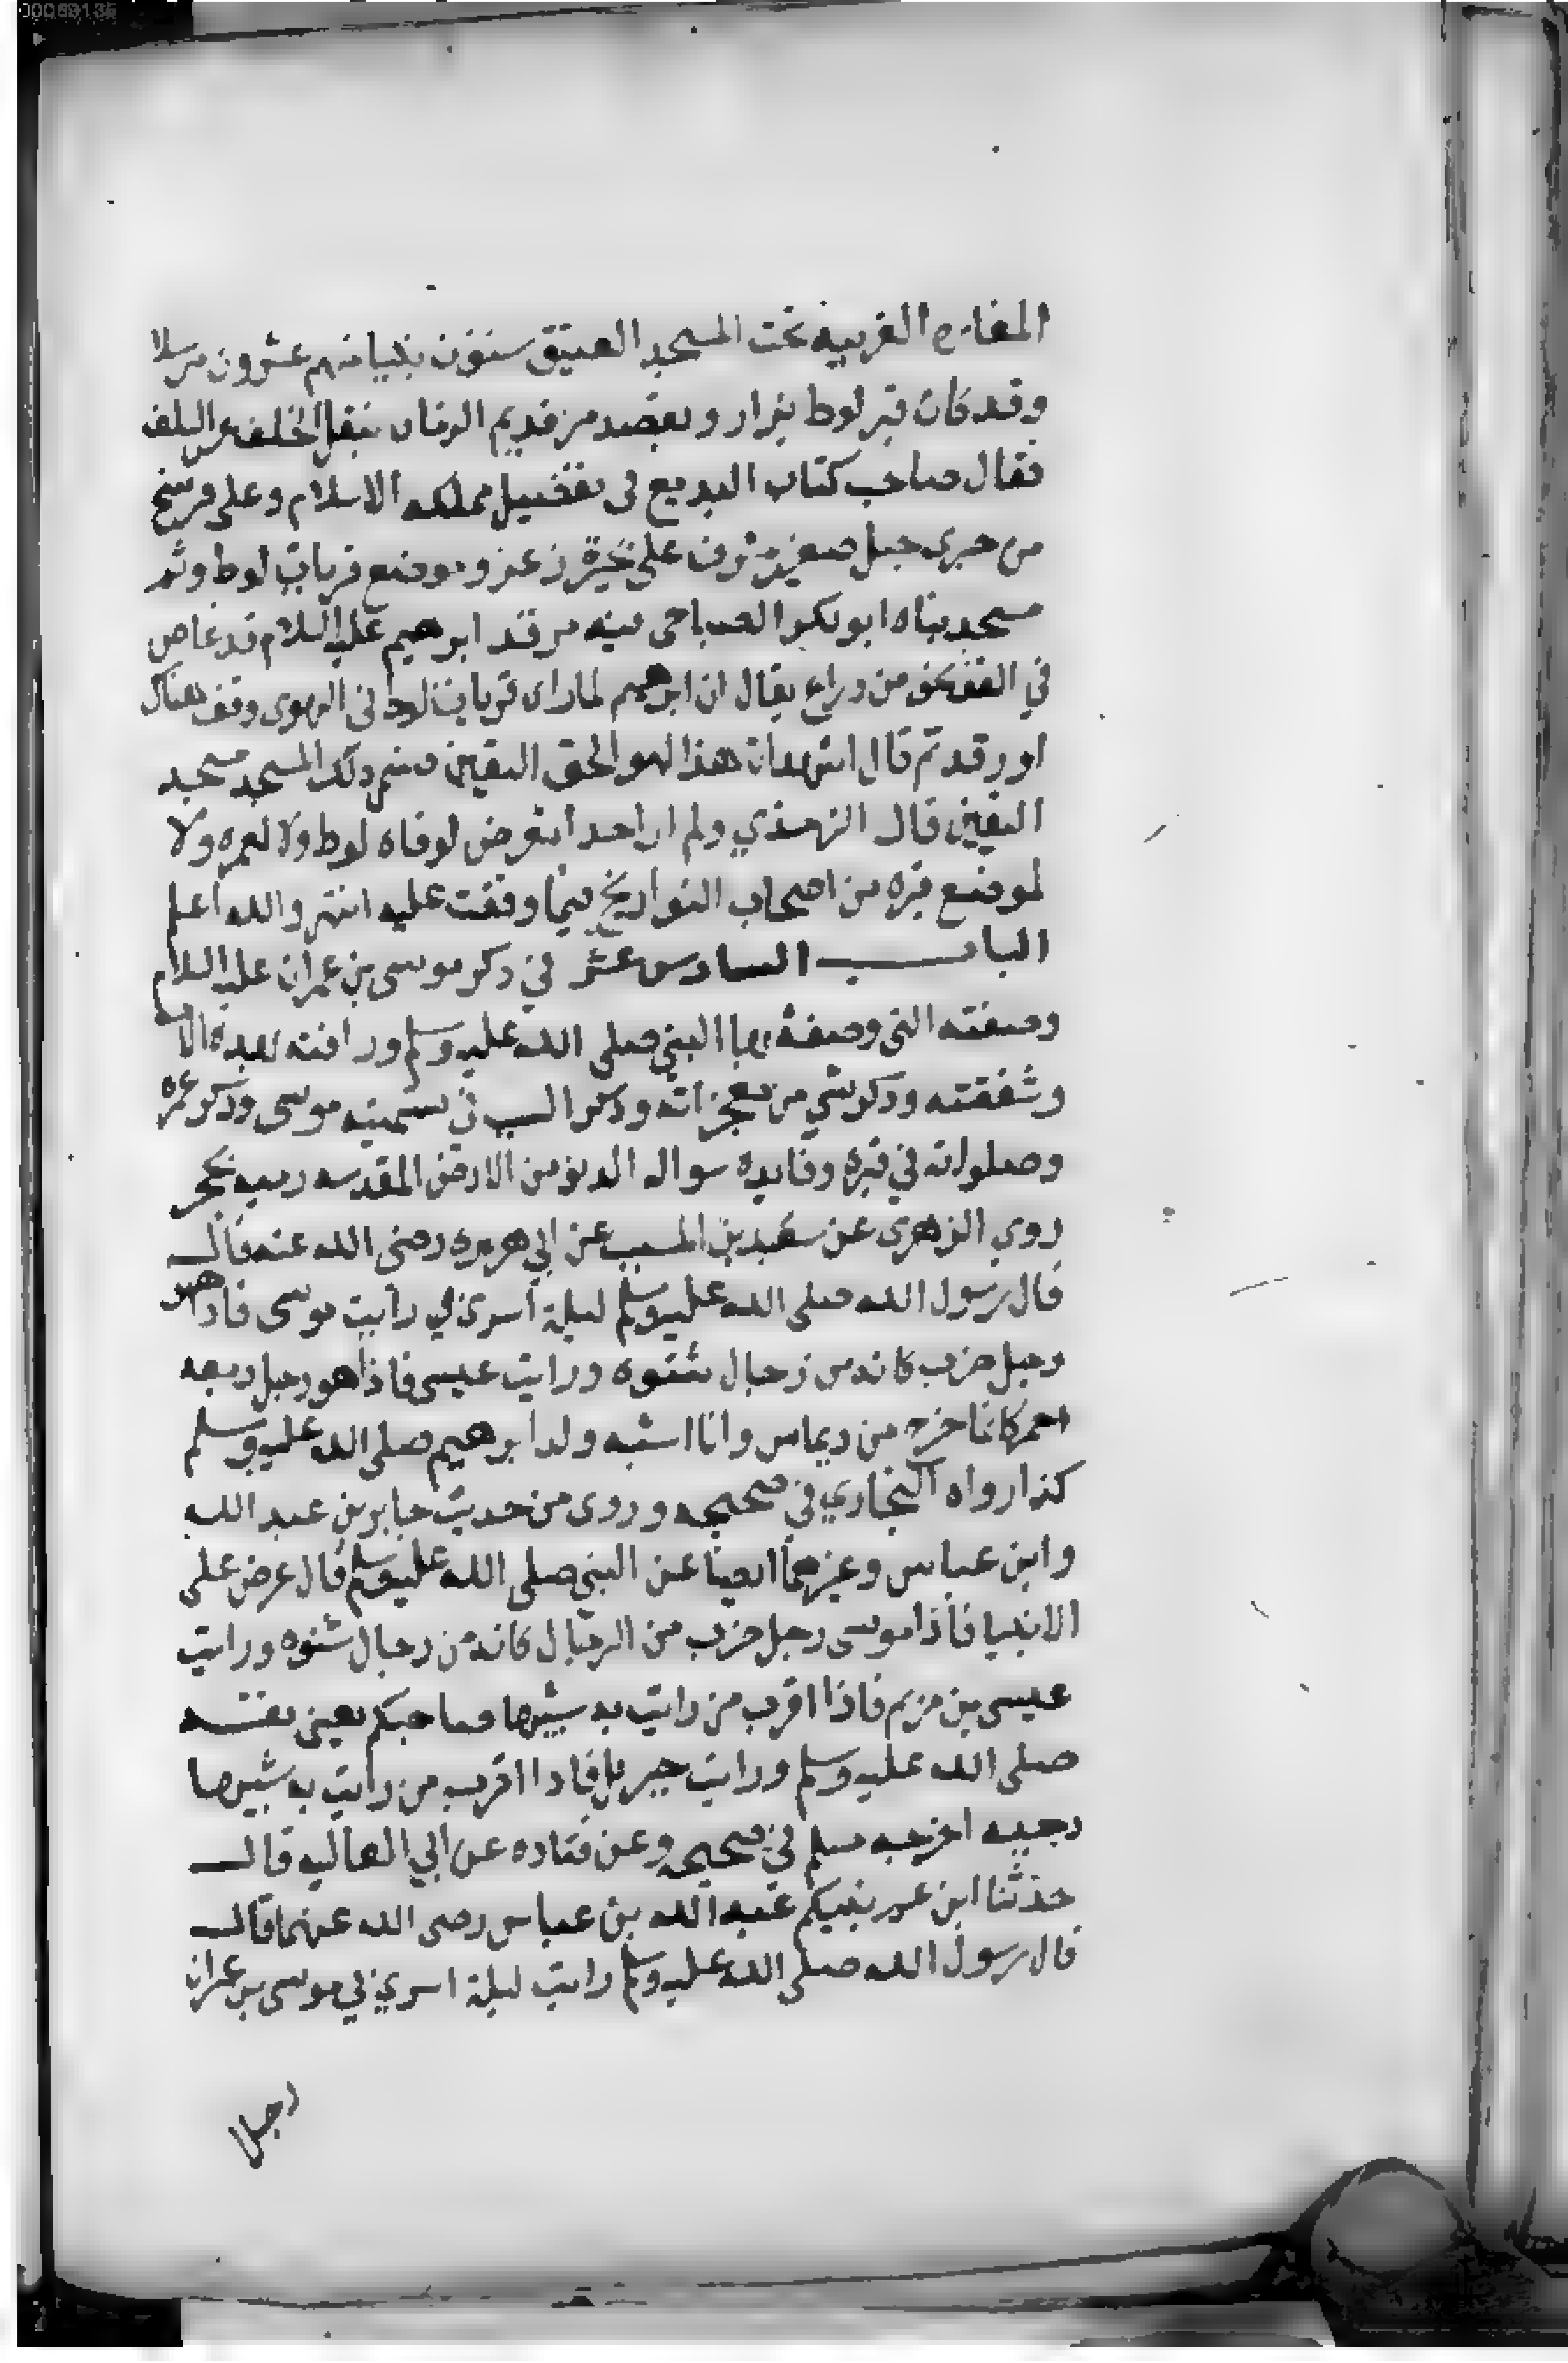 00069135
المغارة الغربيه تحت المسجد العتيق ستون نبيا منهم عشرون مرسلا
وقد كان قبر لوط يزار ويقصد من قديم الزمان بنقل الخلف عن السلف
فقال صاحب كتاب البديع في تفضيل مملكه الاسلام وعلى فرسخ
من حبرى جبل صغير مشرف على بحيرة زغر وموضع قريات لوط وثم
مسجد بناه ابو بكر الصباحى فيه مرقد ابرهيم عليه السلام قد غاص
في القف نحو من دراع يقال ان ابرهيم لما راى قريات لوط في الهوى وقف هناك
او رقد ثم قال اشهد ان هذا لهو الحق اليقين فسمى ذلك المسجد مسجد
اليقين قال الترمذي ولم ار احدا تعرض لوفاه لوط ولا لعمره ولا
لموضع قبره من اصحاب التواريخ فيما وقفت عليه انتهى والله اعلم
الباب السادس عشر في ذكر موسى بن عمران عليه السلام
وصفته التي وصفه بها النبي صلى الله عليه وسلم ورافته بهده الامه
وشفقته وذكر شي من معجزاته وذكر السبب في تسميته موسى وذكر عمره
وصلواته في قبره وفايده سواله الدنو من الارض المقدسه رميه بحجر
روي الزهرى عن سعيد بن المسيب عن ابي هريره رضى الله عنه قال
قال رسول الله صلى الله عليه وسلم ليلة أسرى بي رأيت موسى فاذا هو
رجل ضرب كانه من رجال شنوه ورايت عيسى فاذا هو رجل ربعه
احمر كانما خرج من ديماس وانا اشبه ولد ابرهيم صلى الله عليه وسلم
كذا رواه البخاري في صحيحه وروى من حديث جابر بن عبد الله
وابن عباس وغيرهما ايضا عن النبي صلى الله عليه وسلم قال عرض على
الانبيا فاذا موسى رجل ضرب من الرجال كانه من رجال شنوه ورايت
عيسى بن مريم فاذا اقرب من رايت به شبها صاحبكم يعنى نفسه
صلى الله عليه وسلم ورايت جبريل فاذا اقرب من رايت به شبها
دحيه اخرجه مسلم في صحيحه وعن قتاده عن ابي العاليه قال
حدثنا ابن عم نبيكم عبد الله بن عباس رضى الله عنهما قال
قال رسول الله صلى الله عليه وسلم رايت ليلة اسري بي موسى بن عمران
رجلا